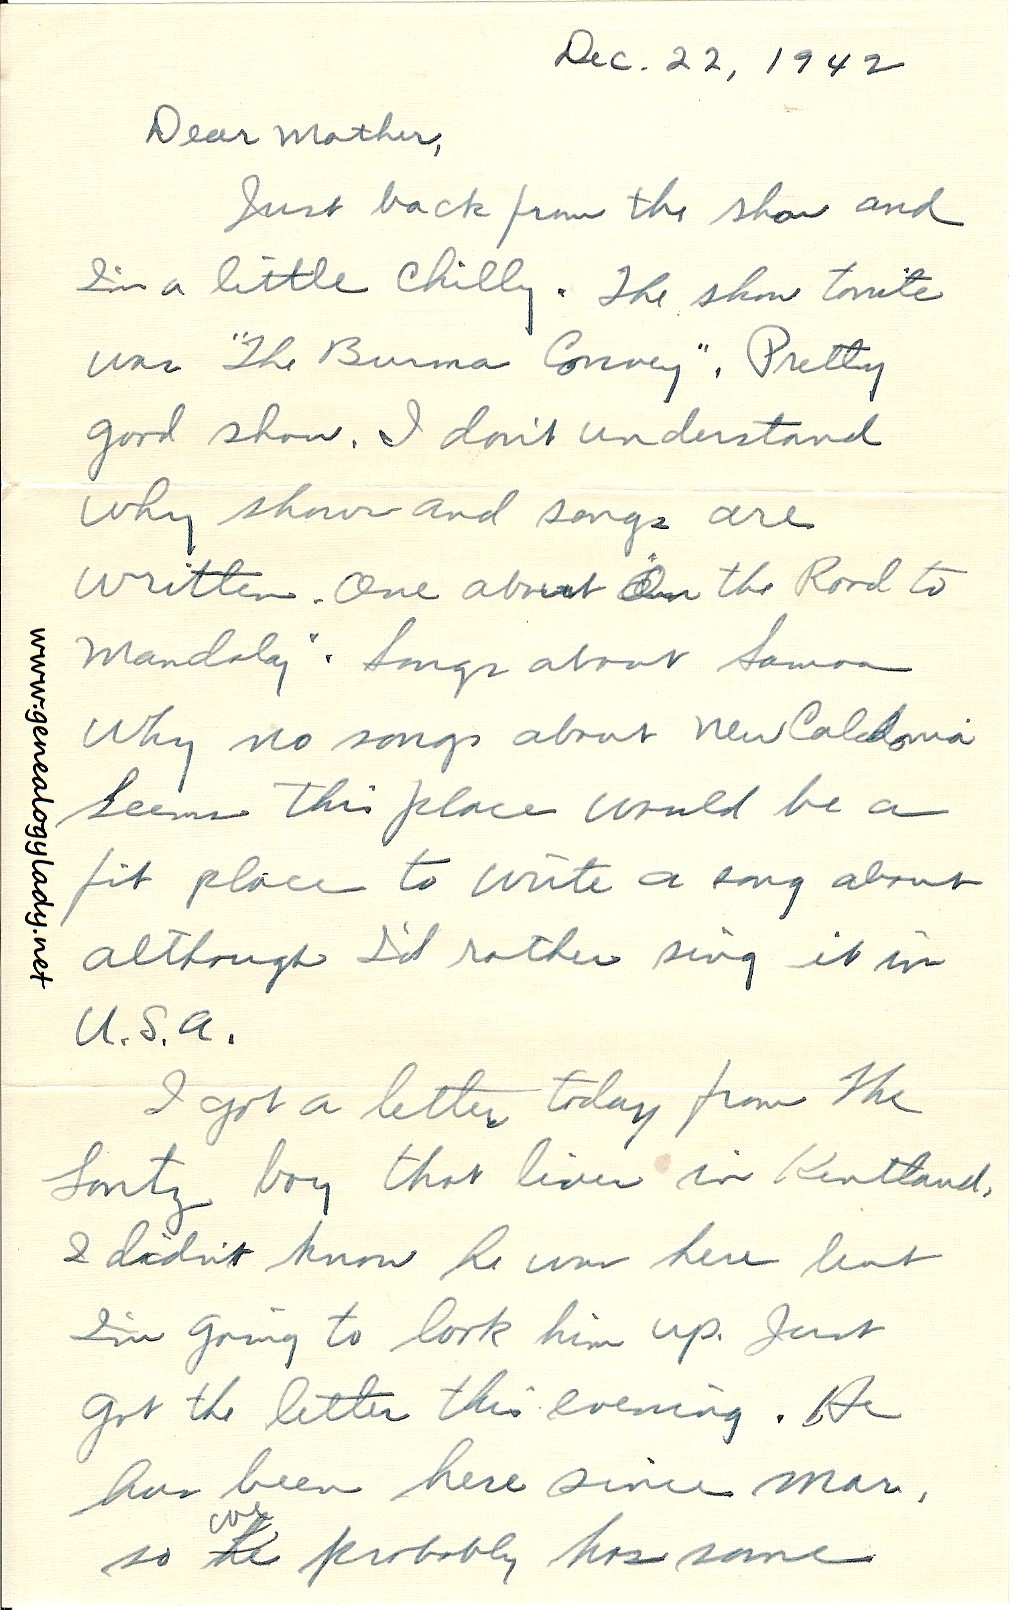 Dec. 22, 1942
Dear Mother,
Just back from the show and
I'm a little chilly. The show tonite
was "The Burma Convoy". Pretty
good show. I don't understand
why shows and songs are
written. One about "On the Road to
Mandalay". Songs about Samoa
Why no songs about New Caledonia
Seems this place would be a
fit place to write a song about
although I'd rather sing it in
U.S.A.
I got a letter today from the
Lontz boy that lives in Kentland.
I didn't know he was here but
I'm going to look him up. Just
got the letter this evening. He
has been here since Mar.,
so we probably has some
www.genealogylady.net